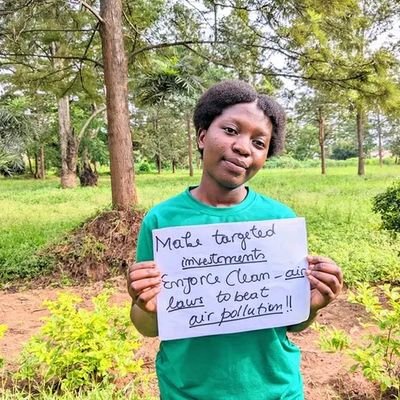 Make targeted
investments
Enforce Clean-air
laws to beat
air pollution!!